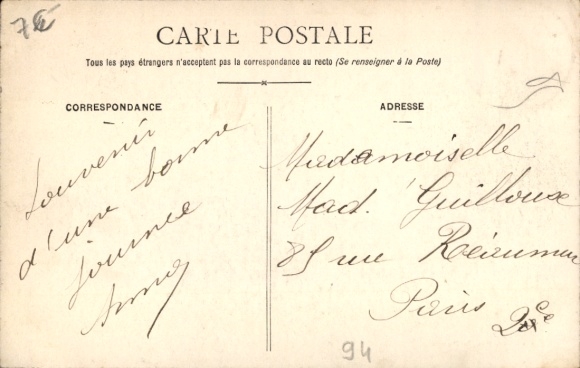 CARTE POSTALE
Tous les pays étrangers n'acceptent pas la correspondance au recto (Se renseigner à la Poste)
CORRESPONDANCE
Souvenir
d'une bonne
journée
ADRESSE
Mademoiselle
Mad. Guilloux
85 rue Réaumur
Paris 2e
94